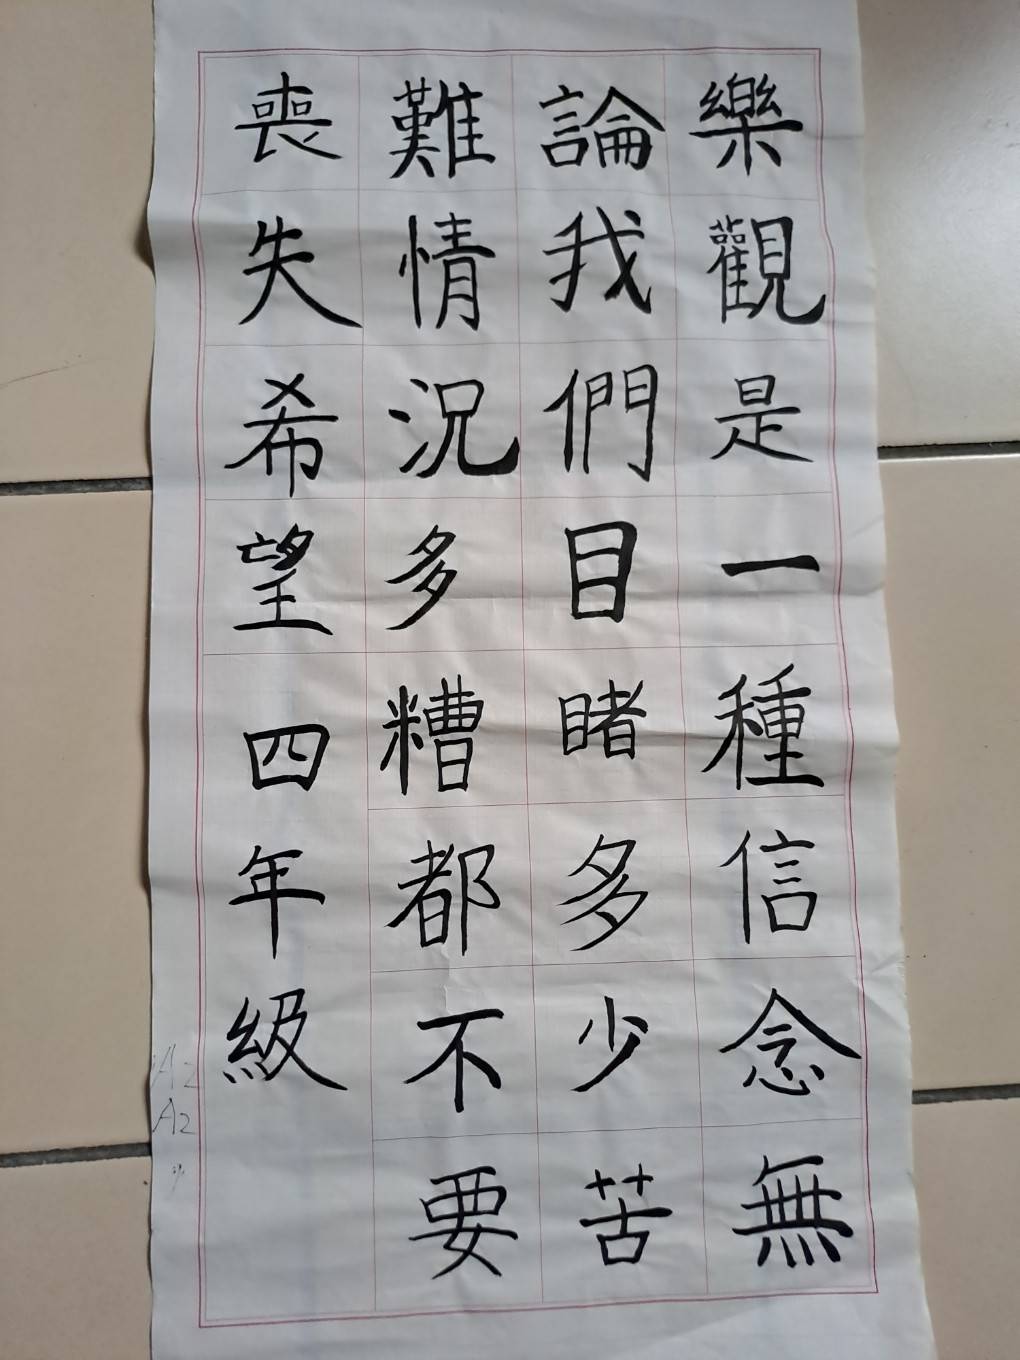 樂觀是一種信念無
論我們目睹多少苦
難情況多糟都不要
喪失希望四年級
A2
A2